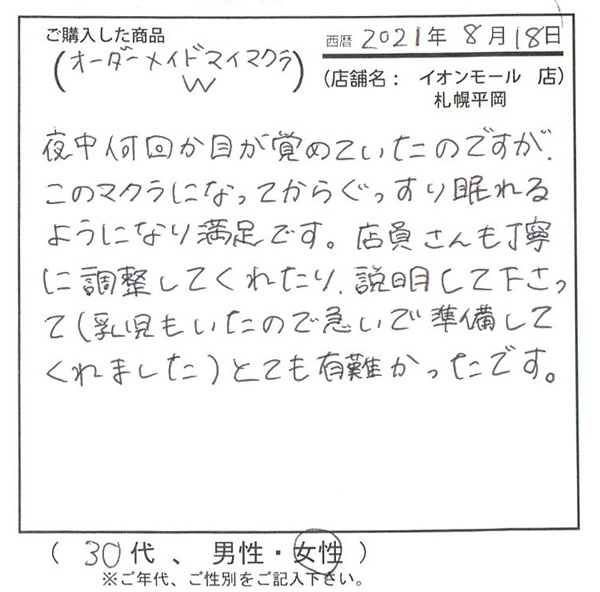 ご購入した商品
(オーダーメイドマイマクラ)
W
西暦 2021年 8月18日
(店舗名： イオンモール 店)
札幌平岡
夜中何回か目が覚めていたのですが、
このマクラになってからぐっすり眠れる
ようになり満足です。店員さんも丁寧
に調整してくれたり、説明して下さっ
て(乳児もいたので急いで準備して
くれました)とても有難かったです。
( 30代 、 男性・女性 )
※ご年代、ご性別をご記入下さい。